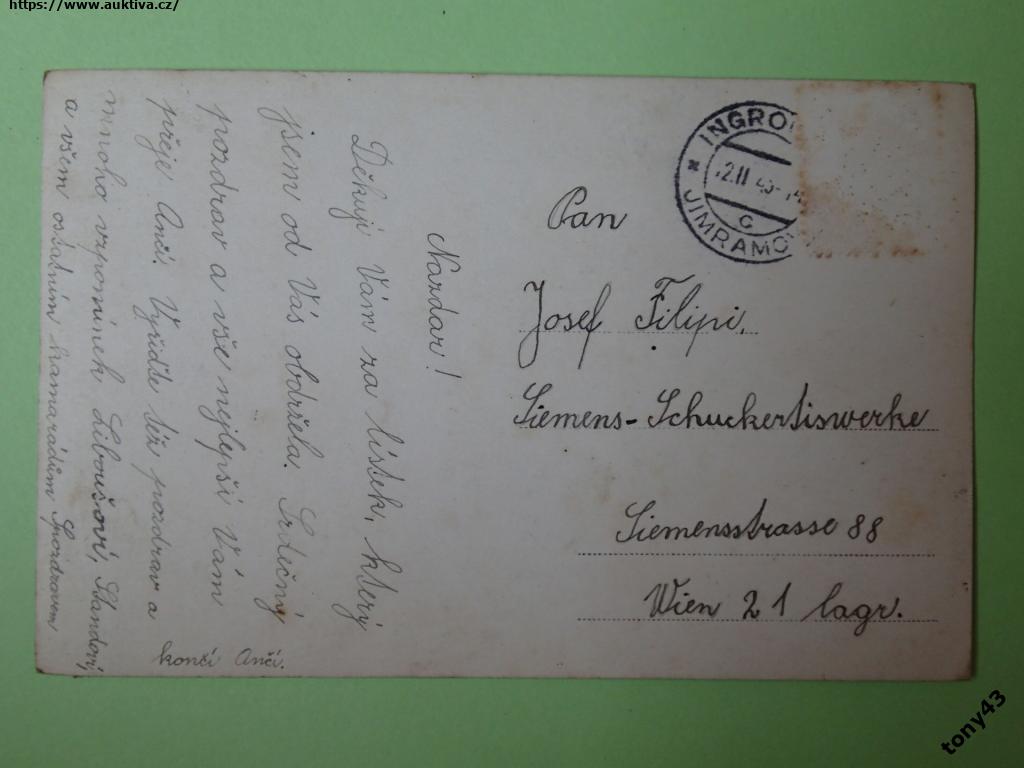 https://www.auktiva.cz/
Nazdar!
Děkuji Vám za lístek, který
jsem od Vás obdržela. Srdečný
pozdrav a vše nejlepší Vám
přeje Anči. Vyřiďte též pozdrav a
mnoho vzpomínek Liboušovi, Standovi,
a všem ostatním kamarádům Spozdravem
končí Anči.
INGRO
12.II 43-14
C
* JIMRAMO
Pan
Josef Filipi.
Siemens-Schuckertiswerke
Siemensstrasse 88
Wien 21 lagr.
tony43